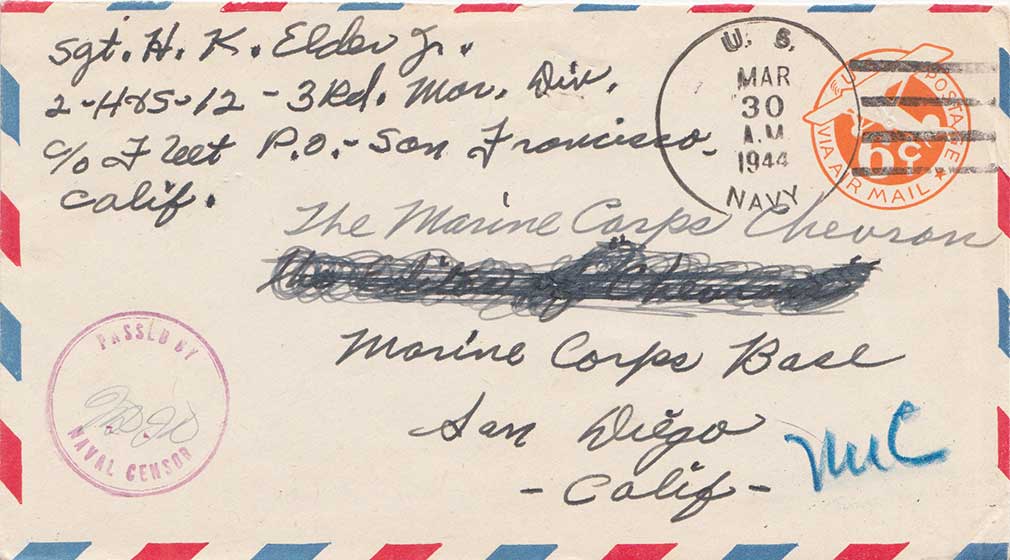 Sgt. H. K. Elder Jr.
2-H&S-12 - 3Rd. Mar. Div.
c/o Fleet P.O. - San Francisco -
Calif.
U. S.
MAR
30
A.M.
1944
NAVY
U POSTAGE
6¢
VIA AIR MAIL
The Marine Corps Chevron
The Editor of Chevron
Marine Corps Base
San Diego
- Calif -
PASSED BY
NAVAL CENSOR